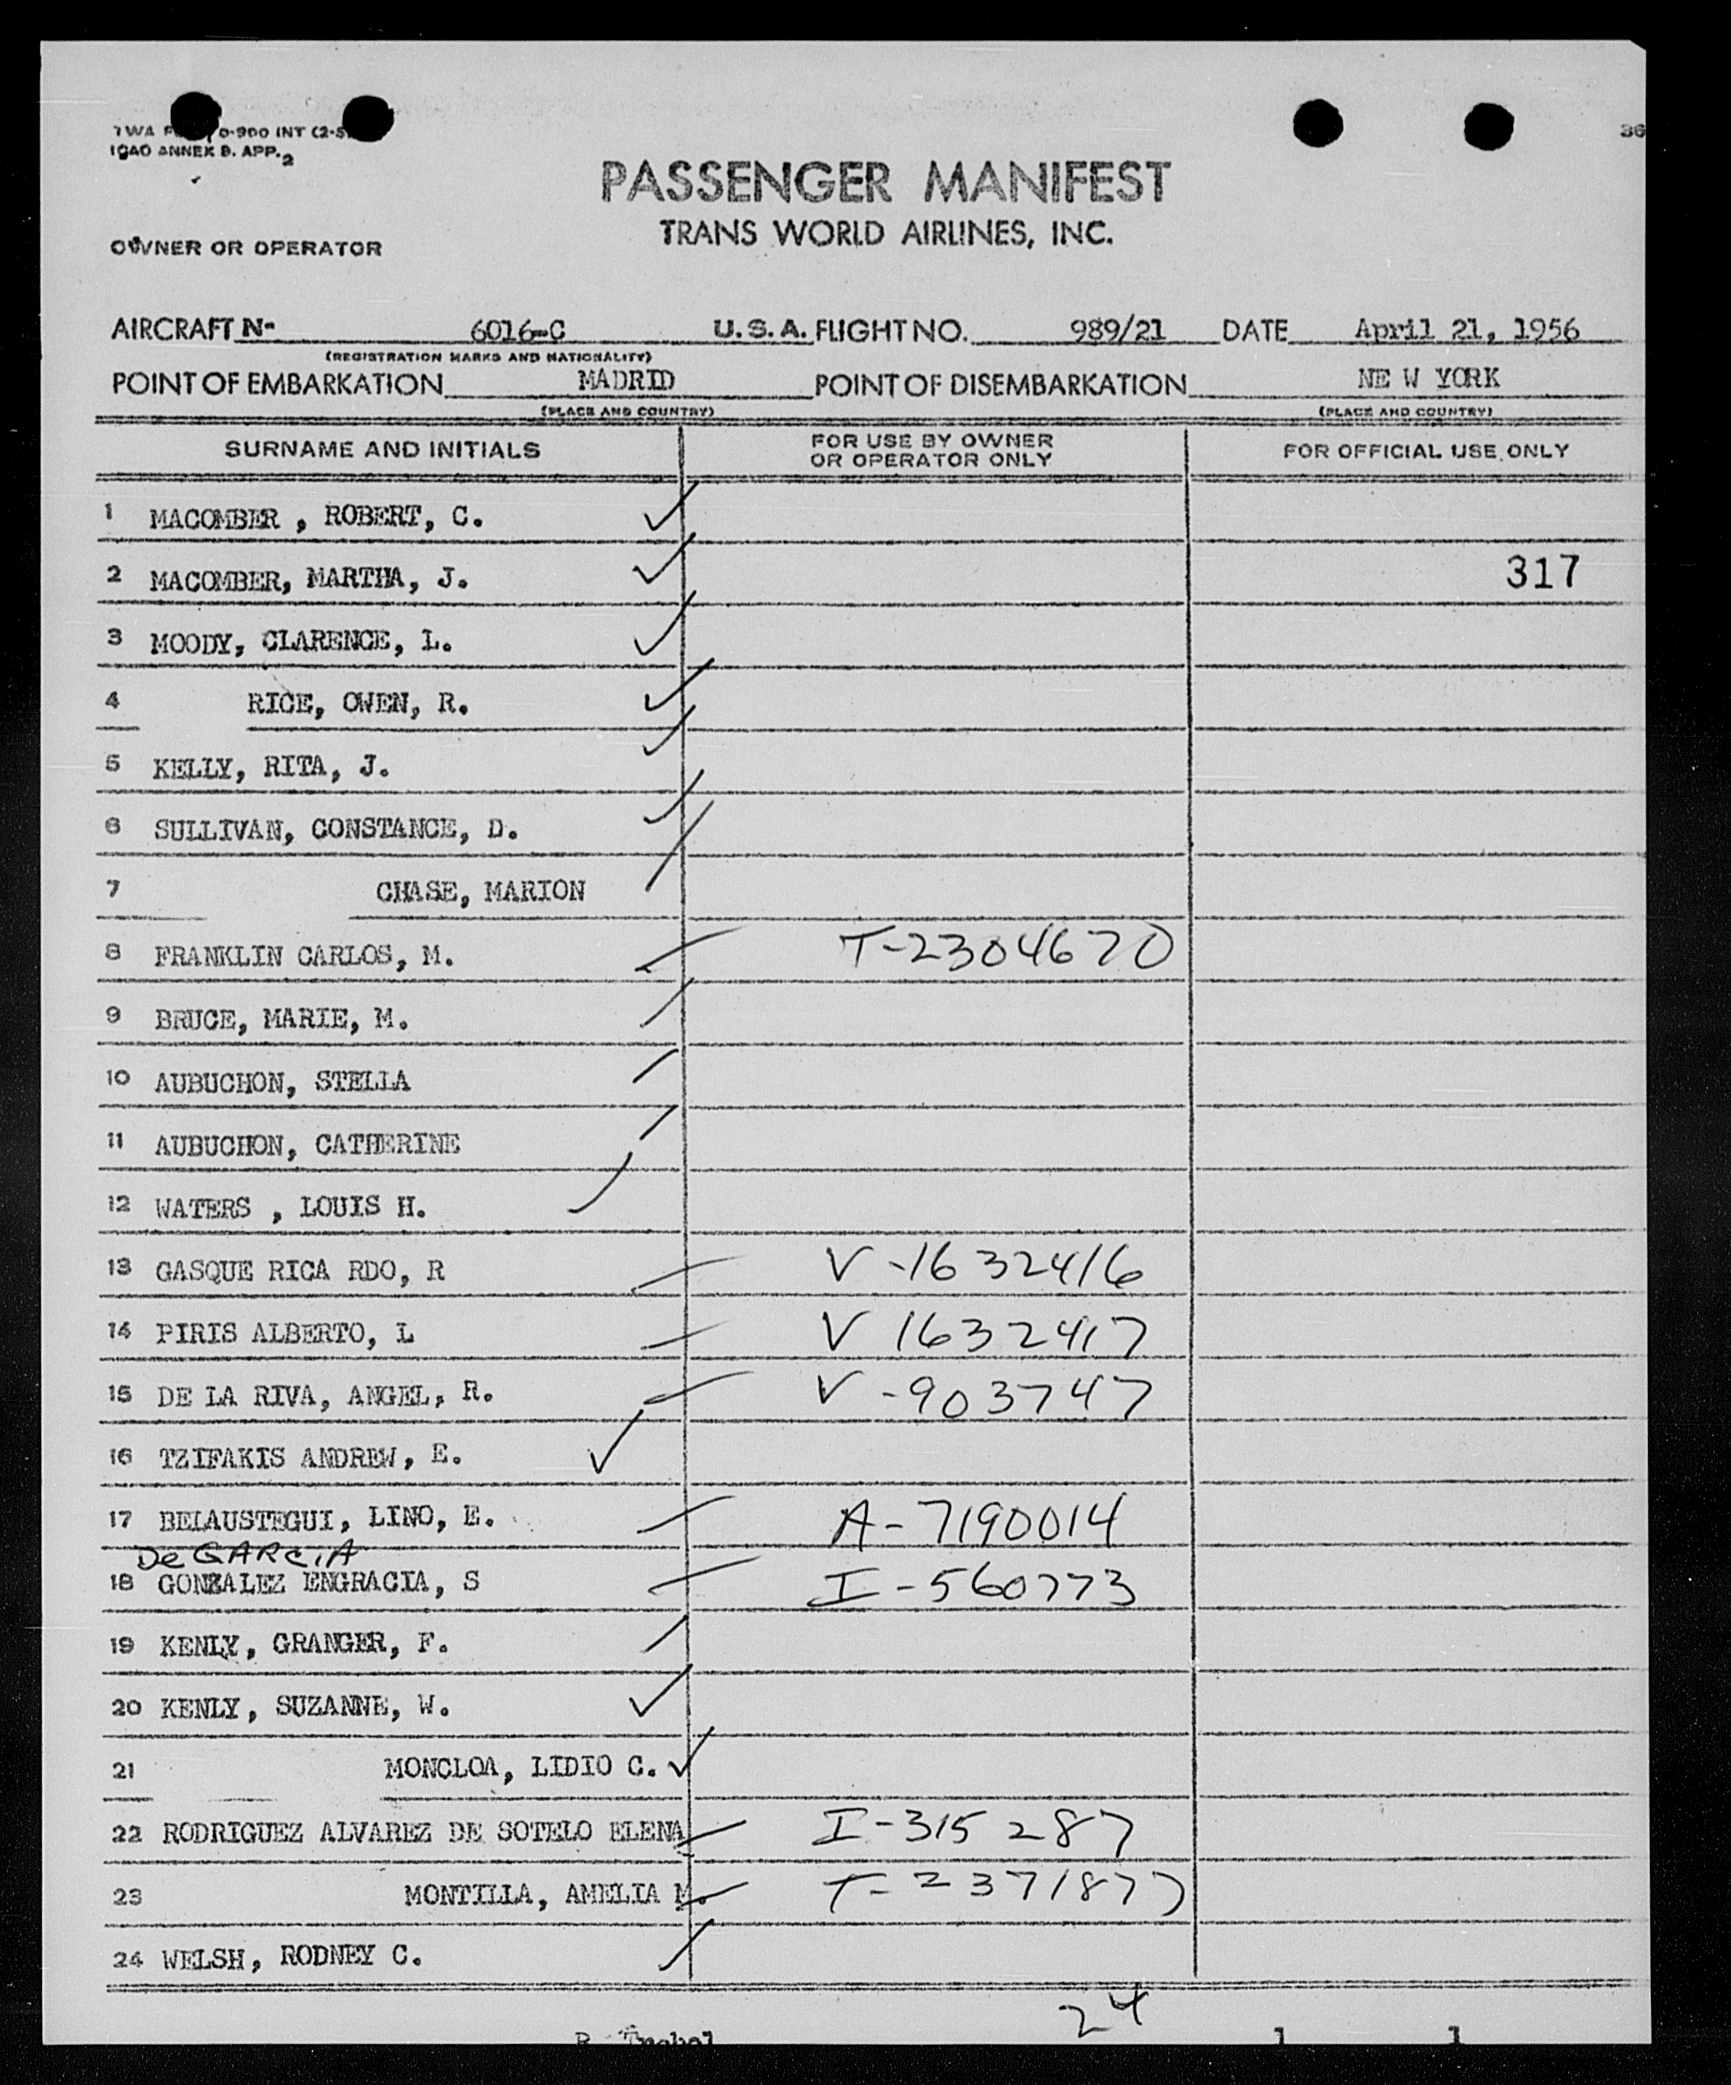 TWA 0-900 INT (2-5
ICAO ANNEX 9. APP. 2
36
PASSENGER MANIFEST
TRANS WORLD AIRLINES, INC.
OWNER OR OPERATOR
AIRCRAFT Nº 6016-C U.S.A. FLIGHT NO. 989/21 DATE April 21, 1956
(REGISTRATION MARKS AND NATIONALITY)
POINT OF EMBARKATION MADRID POINT OF DISEMBARKATION NE W YORK
(PLACE AND COUNTRY) (PLACE AND COUNTRY)
SURNAME AND INITIALS FOR USE BY OWNER OR OPERATOR ONLY FOR OFFICIAL USE ONLY
1 MACOMBER , ROBERT, C. ✓
2 MACOMBER, MARTHA, J. ✓ 317
3 MOODY, CLARENCE, L. ✓
4 RICE, OWEN, R. ✓
5 KELLY, RITA, J. ✓
6 SULLIVAN, CONSTANCE, D. ✓
7 CHASE, MARION
8 FRANKLIN CARLOS, M. T-2304670
9 BRUCE, MARIE, M.
10 AUBUCHON, STELLA
11 AUBUCHON, CATHERINE
12 WATERS , LOUIS H.
13 GASQUE RICA RDO, R V-1632416
14 PIRIS ALBERTO, L V 1632417
15 DE LA RIVA, ANGEL, R. V-903747
16 TZIFAKIS ANDREW, E. ✓
17 BELAUSTEGUI, LINO, E. A-7190014
De GARCIA
18 GONZALEZ ENGRACIA, S I-560773
19 KENLY, GRANGER, F.
20 KENLY, SUZANNE, W. ✓
21 MONCLOA, LIDIO C. ✓
22 RODRIGUEZ ALVAREZ DE SOTELO ELENA I-315287
23 MONTILLA, AMELIA M. T-2371877
24 WELSH, RODNEY C.
24
1 1